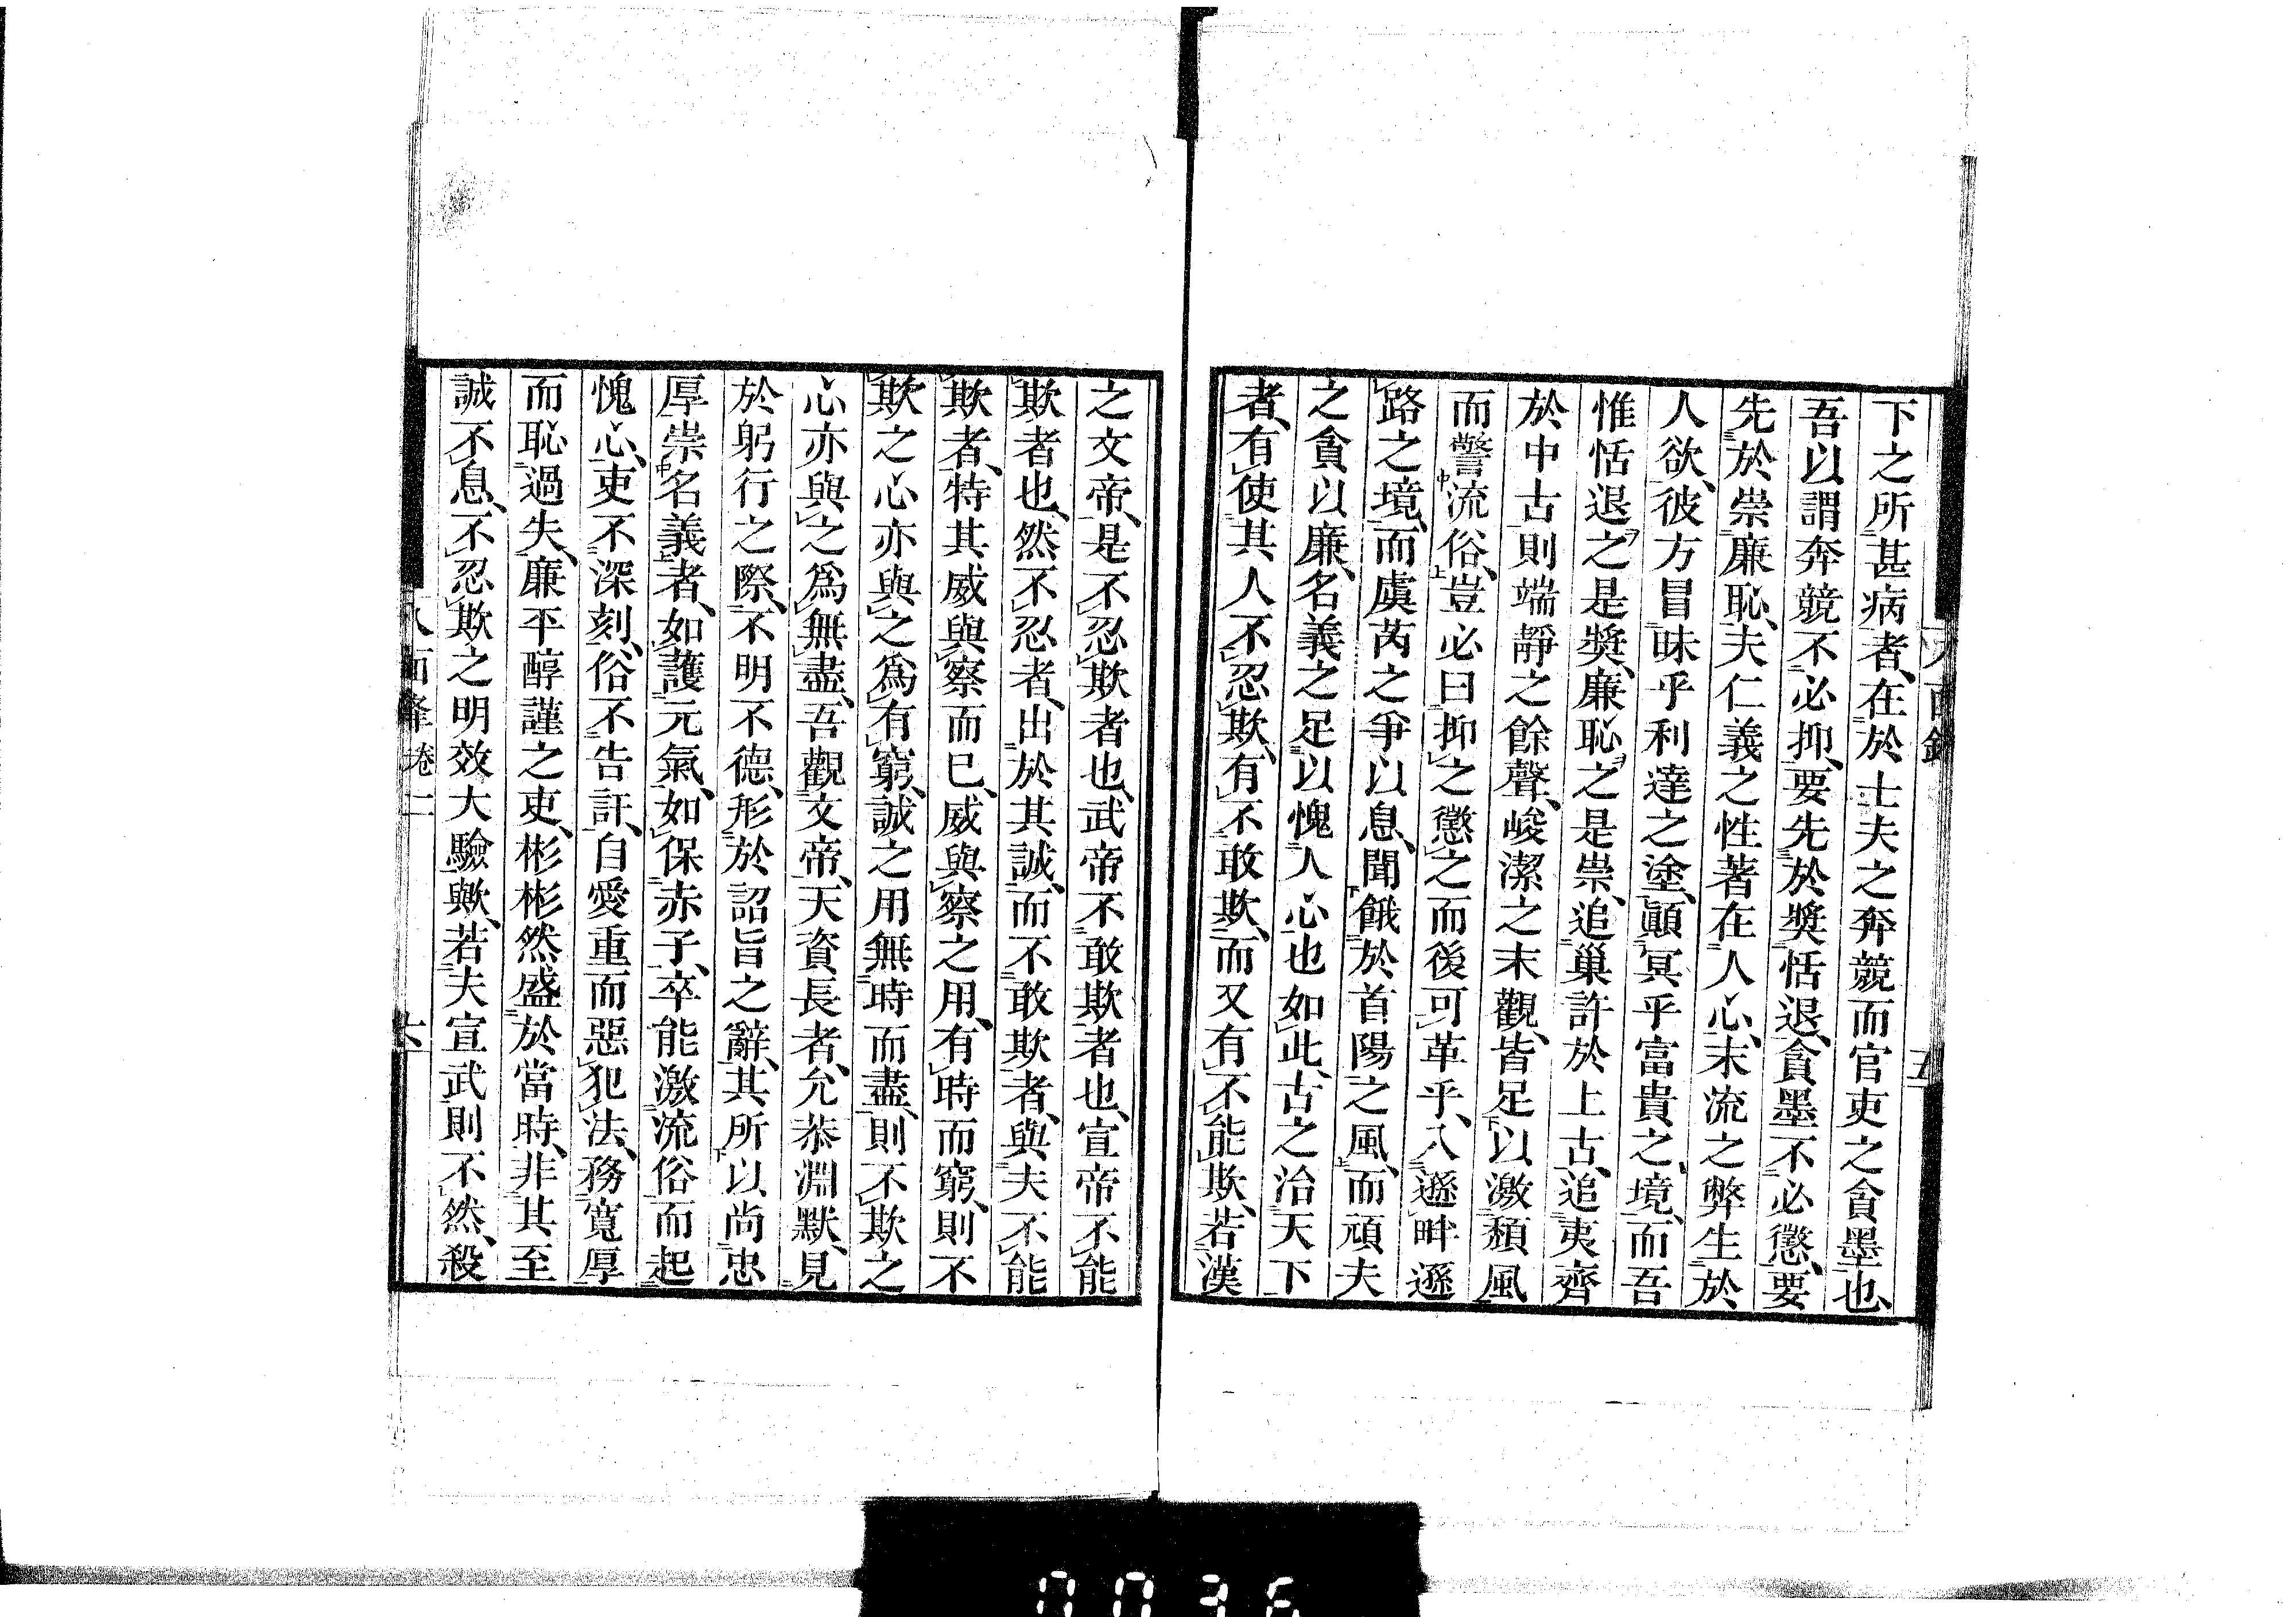 下之所甚病者、在於士夫之奔競而官吏之貪墨也、
吾以謂奔競不必抑、要先於獎恬退、貪墨不必懲、要
先於崇廉恥、夫仁義之性著在人心、末流之弊生於
人欲、彼方冒昧乎利達之塗、顚冥乎富貴之境、而吾
惟恬退之是獎、廉恥之是崇、追巢許於上古、追夷齊
於中古、則端靜之餘聲、峻潔之末觀、皆足以激頽風
而警流俗、豈必曰抑之懲之而後可革乎、入遜畔遜
路之境、而虞芮之爭以息、聞餓於首陽之風、而頑夫
之貪以廉、名義之足以愧人心也如此、古之治天下
者、有使其人不忍欺、有不敢欺、而又有不能欺、若漢
之文帝、是不忍欺者也、武帝不敢欺者也、宣帝不能
欺者也、然不忍者、出於其誠、而不敢欺者、與夫不能
欺者、特其威與察而已、威與察之用、有時而窮、則不
欺之心亦與之爲有窮、誠之用無時而盡、則不欺之
心亦與之爲無盡、吾觀文帝、天資長者、允恭淵默、見
於躬行之際、不明不德、形於詔旨之辭、其所以尚忠
厚崇名義者、如護元氣、如保赤子、卒能激流俗而起
愧心、吏不深刻、俗不告訐、自愛重而惡犯法、務寬厚
而恥過失、廉平醇謹之吏、彬彬然盛於當時、非其至
誠不息、不忍欺之明效大驗歟、若夫宣武則不然、殺
八面鋒 卷二 六
五